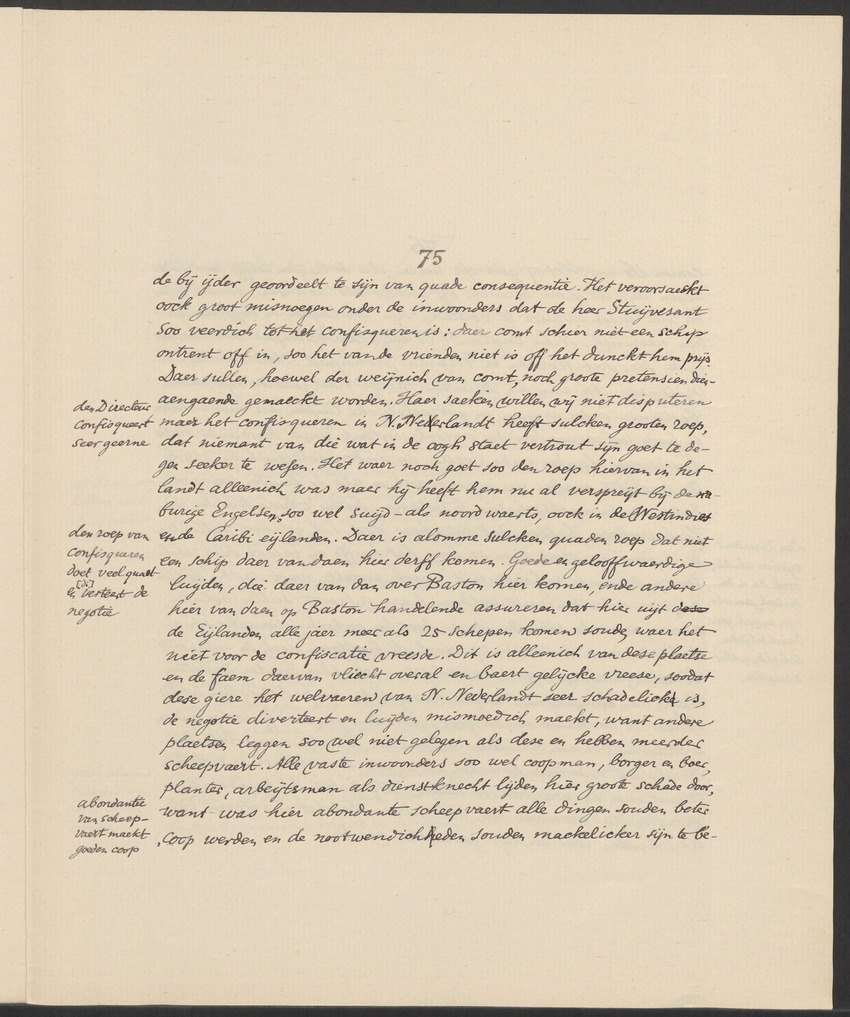 75
de bij ijder geoordeelt te sijn van quade consequentie. Het veroorsaeckt
oock groot misnoegen onder de inwoonders dat de heer Stuijvesant
soo veerdich tot het confisqueren is: daer comt schier niet een schip
ontrent off in, soo het van de vrienden niet is off het dunckt hem prijs.
Daer sullen, hoewel der weijnich van comt, noch groote pretensien dien-
aengaende gemaeckt worden. Haer saeken willen wij niet disputeren
den Directeur
confisqueert
seer geerne
maer het confisqueren in N. Nederlandt heeft sulcken grooten roep,
dat niemant van die wat in de oogh staet vertrout sijn goet te de-
gen seeker te wesen. Het waer noch goet soo den roep hiervan in het
landt alleenich was maer hij heeft hem nu al verspreijt bij de na-
burige Engelsen, soo wel suijd- als noordwaerts, oock in de Westindies
den roep van
confisqueren
doet veel quaet
[di]
en verteert de
negotie
ende Caribi eijlanden. Daer is alomme sulcken quaden roep dat niet
een schip daer vandaen hier derff komen. Goede en gelooffwaerdige
luijden, die daer van dan over Baston hier komen, ende andere
hier van daen op Baston handelende assureren dat hier uijt dese
de Eijlanden alle jaer meer als 25 schepen komen soude, waer het
niet voor de confiscatie vreesde. Dit is alleenich van dese plaetse
en de faem daervan vliecht overal en baert gelijcke vreese, soodat
dese giere het welvaeren van N. Nederlandt seer schadelick is,
de negotie diverteert en luijden mismoedich maeckt, want andere
plaetsen leggen soo wel niet gelegen als dese en hebben meerder
scheepvaert. Alle vaste inwoonders soo wel coopman, borger en boer,
planter, arbeijtsman als dienstknecht lijden hier groote schade door,
abondantie
van scheep-
vaert maekt
goeden coop
want was hier abondante scheepvaert alle dingen souden beter
coop werden en de nootwendichheden souden mackelicker sijn te be-